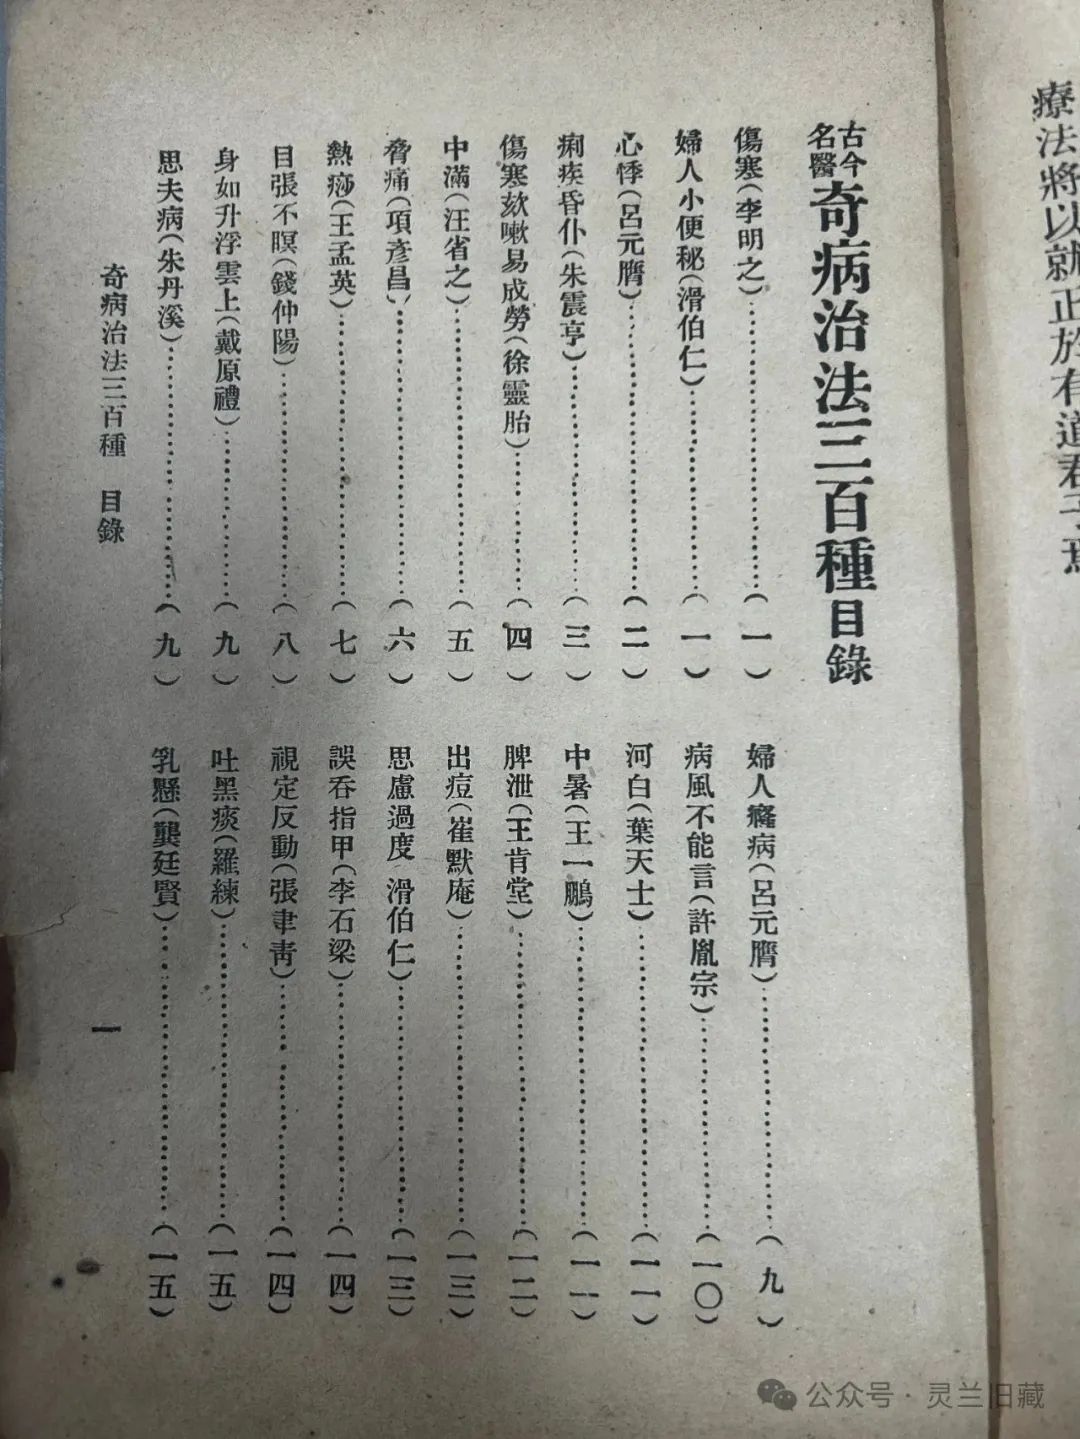 療法將以就正於有道君子焉
古今
名醫
奇病治法三百種目錄
傷寒(李明之)……(一)
婦人小便秘(滑伯仁)……(一)
心悸(呂元膺)……(二)
痢疾昏仆(朱震亨)……(三)
傷寒欬嗽易成勞(徐靈胎)……(四)
中滿(汪省之)……(五)
脅痛(項彥昌)……(六)
熱痧(王孟英)……(七)
目張不瞑(錢仲陽)……(八)
身如升浮雲上(戴原禮)……(九)
思夫病(朱丹溪)……(九)
婦人癃病(呂元膺)……(九)
病風不能言(許胤宗)……(一〇)
河白(葉天士)……(一一)
中暑(王一鵬)……(一一)
脾泄(王肯堂)……(一二)
出痘(崔默庵)……(一三)
思慮過度 滑伯仁)……(一三)
誤吞指甲(李石梁)……(一四)
視定反動(張聿青)……(一四)
吐黑痰(羅練)……(一五)
乳懸(龔廷賢)……(一五)
奇病治法三百種 目錄
一
公众号·灵兰旧藏